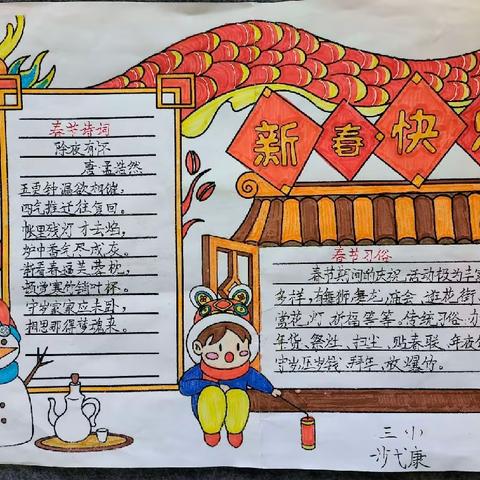 新春快乐
春节诗词
除夜有怀
唐·孟浩然
五更钟漏欲相催,
四气推迁往复回。
帐里残灯才去焰,
炉中香气尽成灰。
渐看春逼芙蓉枕,
顿觉寒销竹叶杯。
守岁家家应未卧,
相思那得梦魂来。
春节习俗
春节期间的庆祝活动极为丰富
多样,有舞狮、舞龙、庙会、逛花街、
赏花灯、祈福等等。传统习俗、办
年货、祭灶、扫尘、贴春联、年夜饭
守岁、压岁钱、拜年、放爆竹。
三(1)
沙弋康